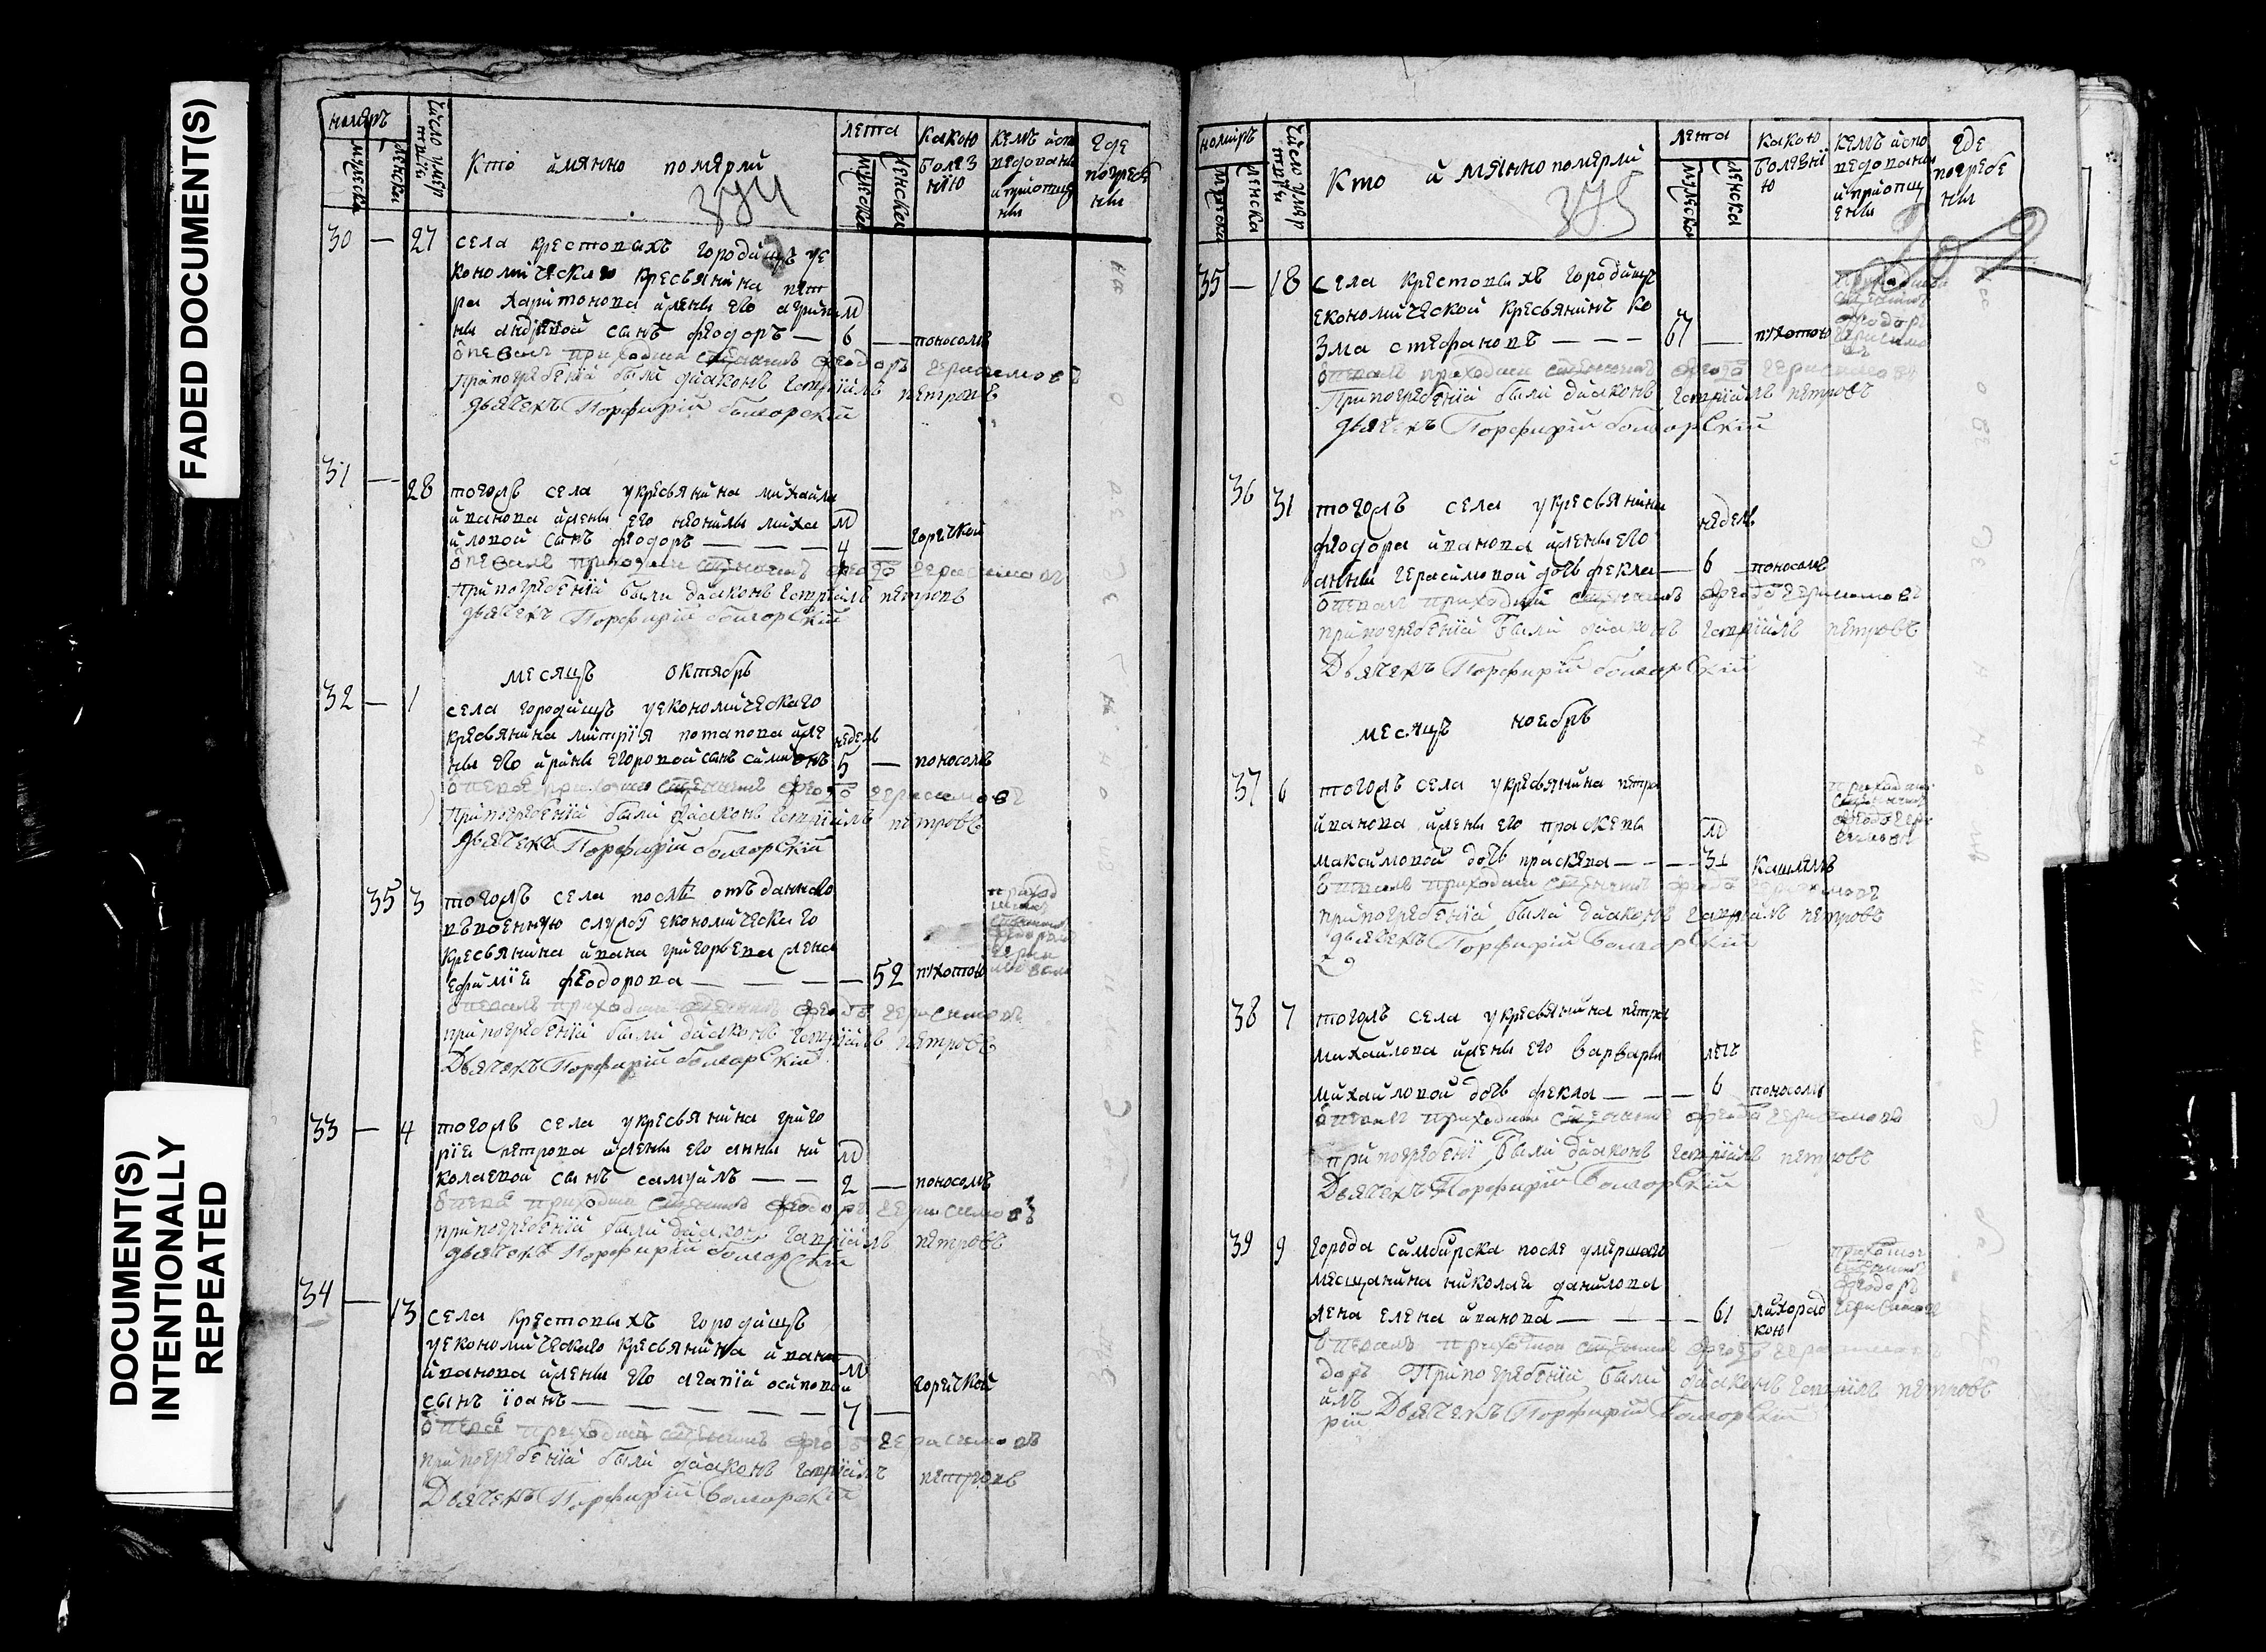 FADED DOCUMENT(S)
DOCUMENT(S)
INTENTIONALLY
REPEATED
номеръ
мужеска
женска
число умер
твiи
Кто имянно померли
374
лета
мужеска
женска
какою
болез
нiю
кемъ испо
ведованы
и приотще
ны
где
погребе
ны
30 — 27 села крестовыхъ городищъ уе
кономическаго кресьянина пет
ра харитонова ижены его агрипи м
ны андревой сынъ феодоръ — 6 — поносомъ
опевалъ приходши священникъ феодоръ герасимовъ
При погребенiи были дiаконъ Гаврiилъ петровъ
дьячекъ Порфирiй болгорскiй
31 — 28 тогожъ села укресьянина михаила
иванова ижены его неонилы миха м
иловой сынъ феодоръ — — — 4 — горячкой
опевалъ приходши священникъ феодо герасимовъ
При погребенiи были дiаконъ Гаврiилъ петровъ
дьячекъ Порфирiй болгорскiй
месяцъ октябрь
32 — 1 села городищъ уекономическаго
кресьянина митрiя потапова иже недель
ны его ирины егоровой сынъ симионъ 5 — поносомъ
опевалъ приходши священникъ феодо герасимовъ
При погребенiи были дiаконъ Гаврiилъ петровъ
дьячекъ Порфирiй болгорскiй
35 3 тогожъ села после отъданнаго
въ военную службу економическаго
кресьянина ивана григорьева жена
ефимiи феодорова — — — — 52 чихотою
опевалъ приходши священникъ феодо герасимовъ
при погребенiи были дiаконъ Гаврiилъ петровъ
Дьячекъ Порфирiй болгорскiй
33 — 4 тогожъ села укресьянина григо
рiи петрова ижены его анны ни м
колаевой сынъ самуилъ — — 2 — поносомъ
опевалъ приходши священникъ феодоръ герасимовъ
при погребенiи были дiаконъ Гаврiилъ петровъ
дьячекъ Порфирiй болгорскiй
34 — 13 села крестовыхъ городищъ
уекономическаго кресьянина ивана
иванова ижены его агапiи осиповой м горячкой
сынъ iоанъ — — — — — — 7 —
опевалъ приходши священникъ феодо герасимовъ
при погребенiи были дiаконъ Гаврiилъ петровъ
Дьячекъ Порфирiй болгорскiй
номиръ
мужеска
женска
число умер
твiи
Кто имянно померли
375
лета
мужеска
женска
какою
болезнi
ю
кемъ испо
ведованы
и приотщ
ены
где
погребе
ны
35 — 18 села крестовыхъ городищъ
економической кресьянинъ ко
зма стефановъ — — — 67 — чихотою
опевалъ приходши священникъ феодо герасимовъ
При погребенiи были дiаконъ Гаврiилъ петровъ
дьячекъ Порфирiй болгорскiй
36 31 тогожъ села укресьянина
феодора иванова ижены его недель
анны герасимовой дочь фекла — 6 поносомъ
опевалъ приходши священникъ феодо герасимовъ
при погребенiи были дiаконъ Гаврiилъ петровъ
Дьячекъ Порфирiй болгорскiй
месяцъ ноебрь
37 6 тогожъ села укресьянина петра
иванова ижены его праскевы м
максимовой дочь праскева — — — 3 кашлямъ
опевалъ приходши священникъ феодо герасимовъ
при погребенiи были дiаконъ Гаврiилъ петровъ
дьячекъ Порфирiй болгорскiй
38 7 тогожъ села укресьянина петра
михайлова ижены его варвары летъ
михайловой дочь фекла — — — 6 поносомъ
опевалъ приходши священникъ феодо герасимовъ
при погребенiи были дiаконъ Гаврiилъ петровъ
Дьячекъ Порфирiй болгорскiй
39 9 города симбирска после умершаго
мещанина николая данилова
жена елена иванова — — — — 61 лихорад
кою
опевалъ приходши священникъ феодо герасимовъ
При погребенiи были дiаконъ Гаврiилъ петровъ
Дьячекъ Порфирiй болгорскiй